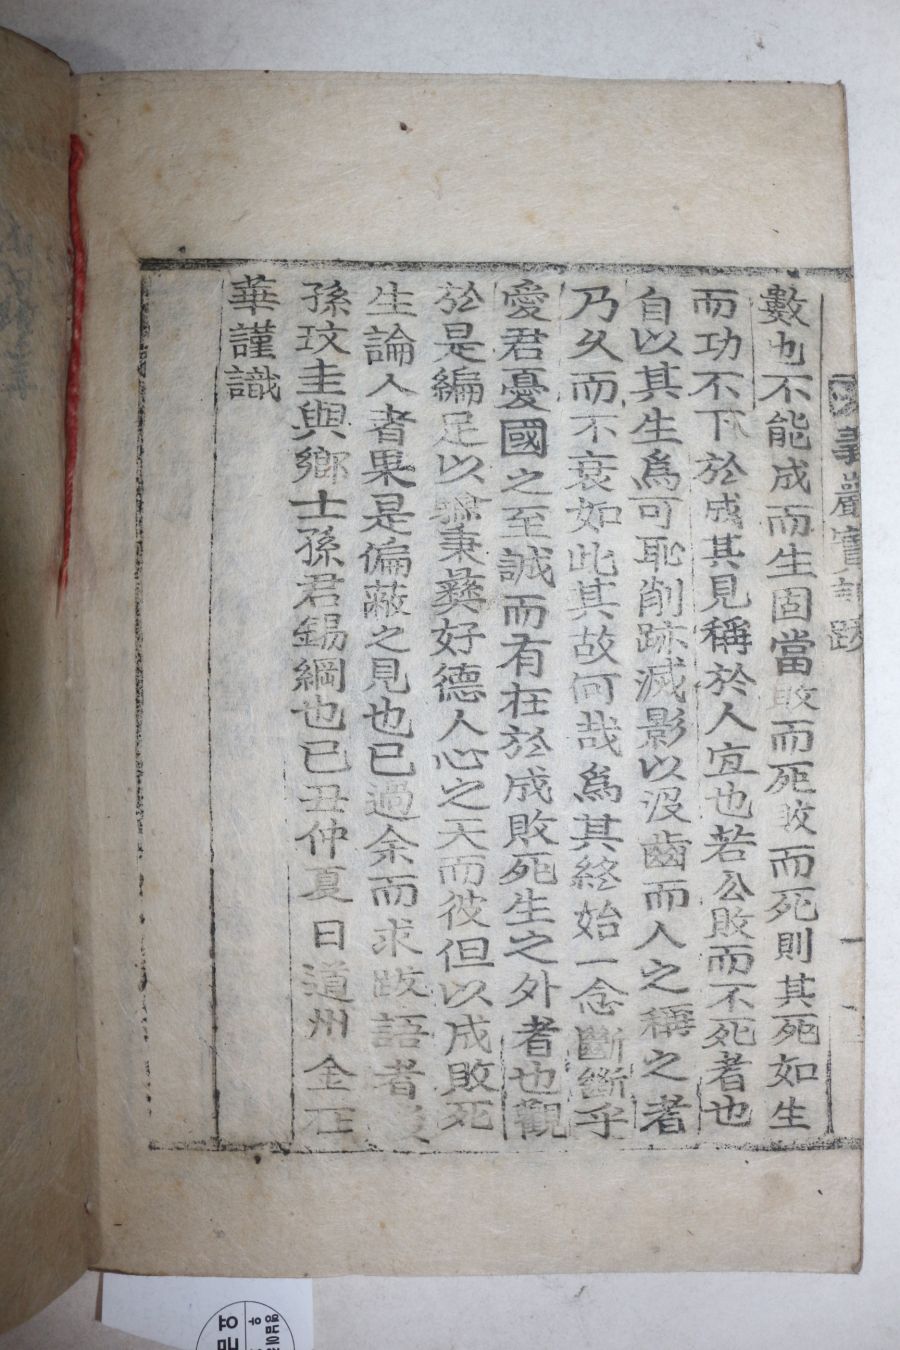 義巖實記 跋
數也不能成而生固當敗而死敗而死則其死如生
而功不下於成其見稱於人宜也若公敗而不死者也
自以其生爲可恥削跡滅影以沒齒而人之稱之者
乃久而不衰如此其故何哉爲其終始一念斷斷乎
愛君憂國之至誠而有在於成敗死生之外者也觀
於是編足以驗秉彝好德人心之天而彼但以成敗死
生論人者果是偏蔽之見也已過余而求跋語者
孫玟圭與鄕士孫君錫綱也已丑仲夏日道州金在
華謹識